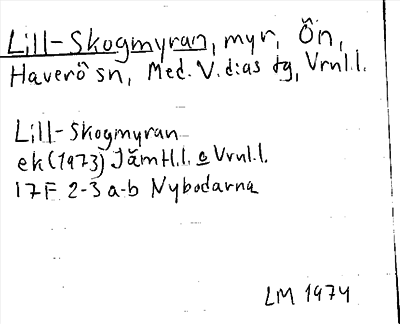 Lill-Skogmyran, myr, Ön,
Haverö sn, Med. V. d:as tg, Vrnl.l.
Lill-Skogmyran
ek (1973) Jämtl.l. o Vrnl.l.
17F 2-3 a-b Nybodarna
LM 1974